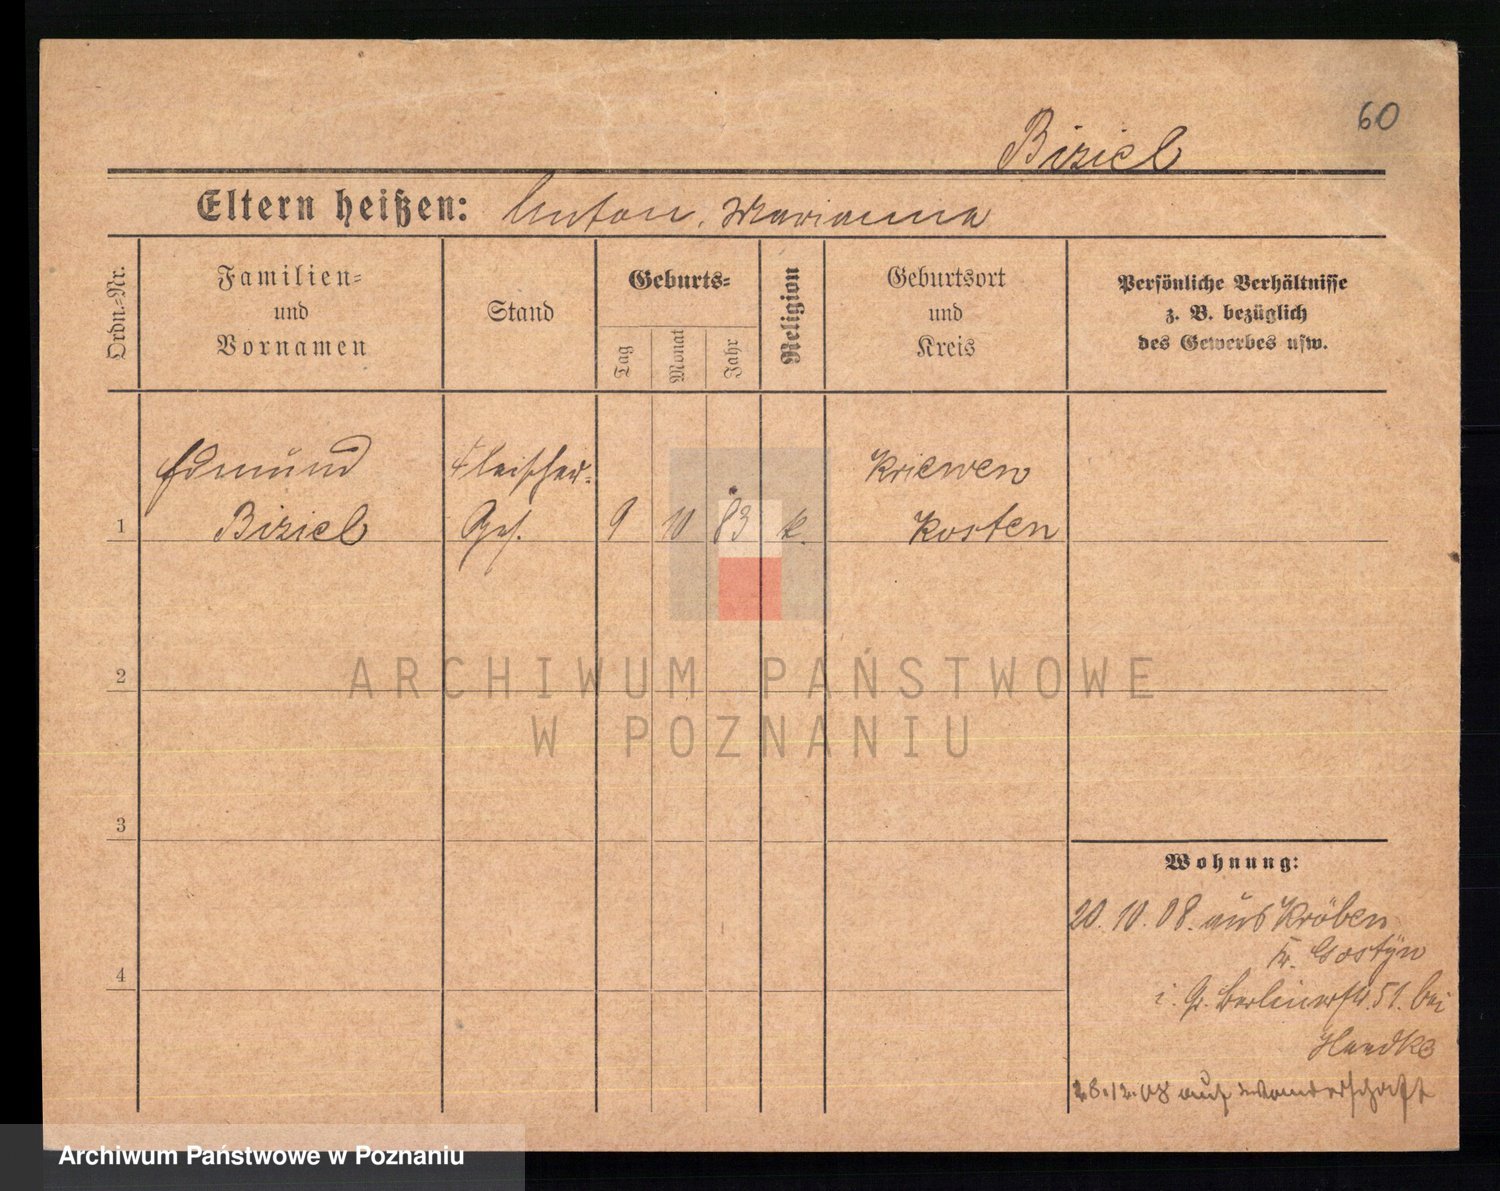 60
Biziel
Eltern heißen: Anton, Marianna
Ordn.-Nr.
Familien-
und
Vornamen
Stand
Geburts-
Tag
Monat
Jahr
Religion
Geburtsort
und
Kreis
Persönliche Verhältnisse
z. B. bezüglich
des Gewerbes usw.
Edmund Fleischer- Kriewen
1 Biziel Ges. 9 10 83 k. Kosten
2
ARCHIWUM PAŃSTWOWE
W POZNANIU
3
Wohnung:
20.10.08. aus Kröben
Kr. Gostyn
4
i. G. Berlinerstr. 51. bei
Handke
28.12.08 auf Wanderschaft
Archiwum Państwowe w Poznaniu